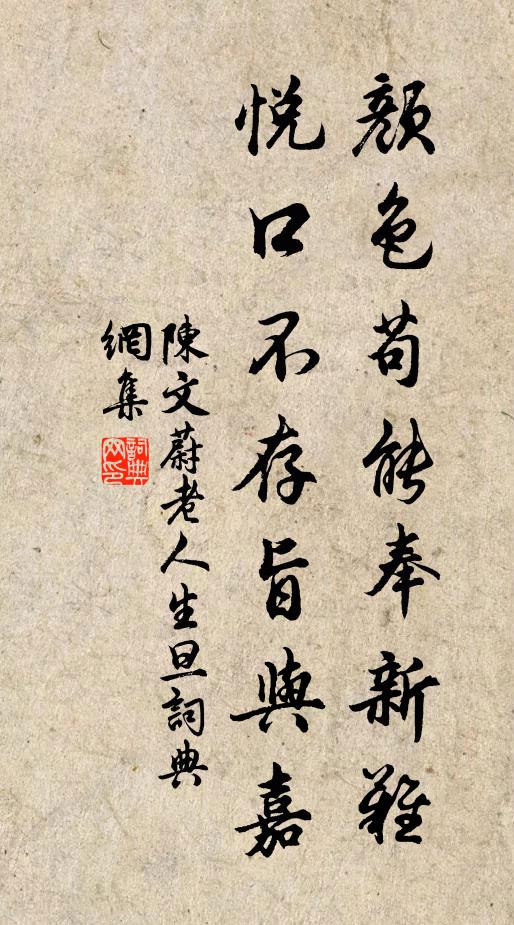 顏色苟能奉新難
悅口不存旨與嘉
陳文蔚老人生旦詞典
網集
詞典網印